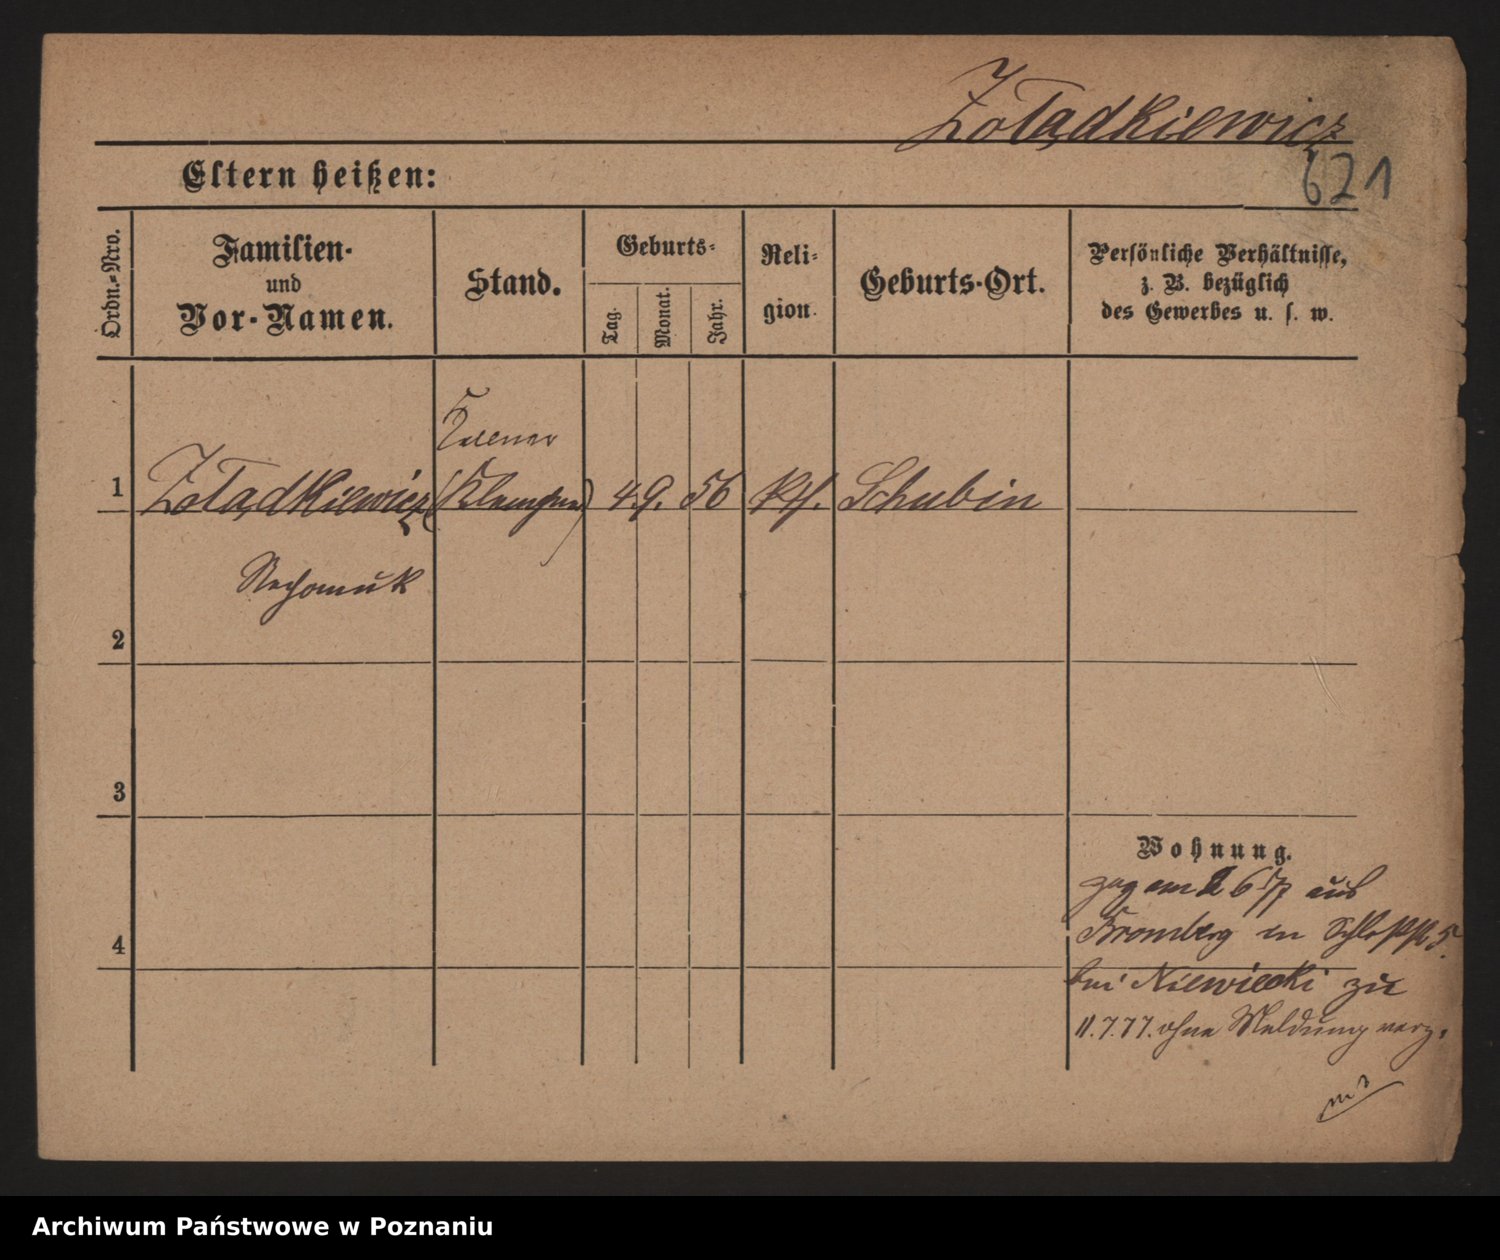 Żołądkiewicz
621
Eltern heißen:
Ordn.-Nro.
Familien-
und
Vor-Namen.
Stand.
Geburts-
Tag.
Monat.
Jahr.
Reli-
gion.
Geburts-Ort.
Persönliche Verhältnisse,
z. B. bezüglich
des Gewerbes u. s. w.
1 Żołądkiewicz (Klempner) 4. 9. 56 kth. Schubin
Nepomuk
2
3
Wohnung.
zog am 2 6 77 aus
4
Bromberg in Schloßstr 5.
bei Niewiecki zu
11.7.77. ohne Meldung verz.
Archiwum Państwowe w Poznaniu